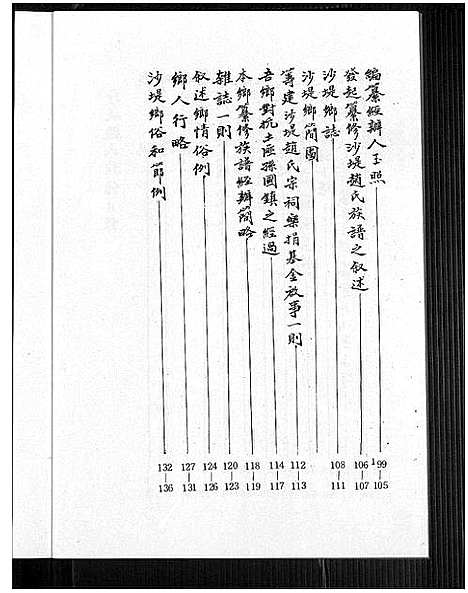 編纂經辦人玉照 99—105
發起纂修沙堤趙氏族譜之叙述 106—107
沙堤鄉誌 108—111
沙堤鄉簡圖
籌建沙堤趙氏宗祠樂捐基金啟事一則 112—113
吾鄉對抗土匪孫國鎮之經過 114—117
本鄉纂修族譜經辦簡略 118—119
雜誌一則 120—123
叙述鄉情俗例 124—126
鄉人行略 127—131
沙堤鄉俗和節例 132—136